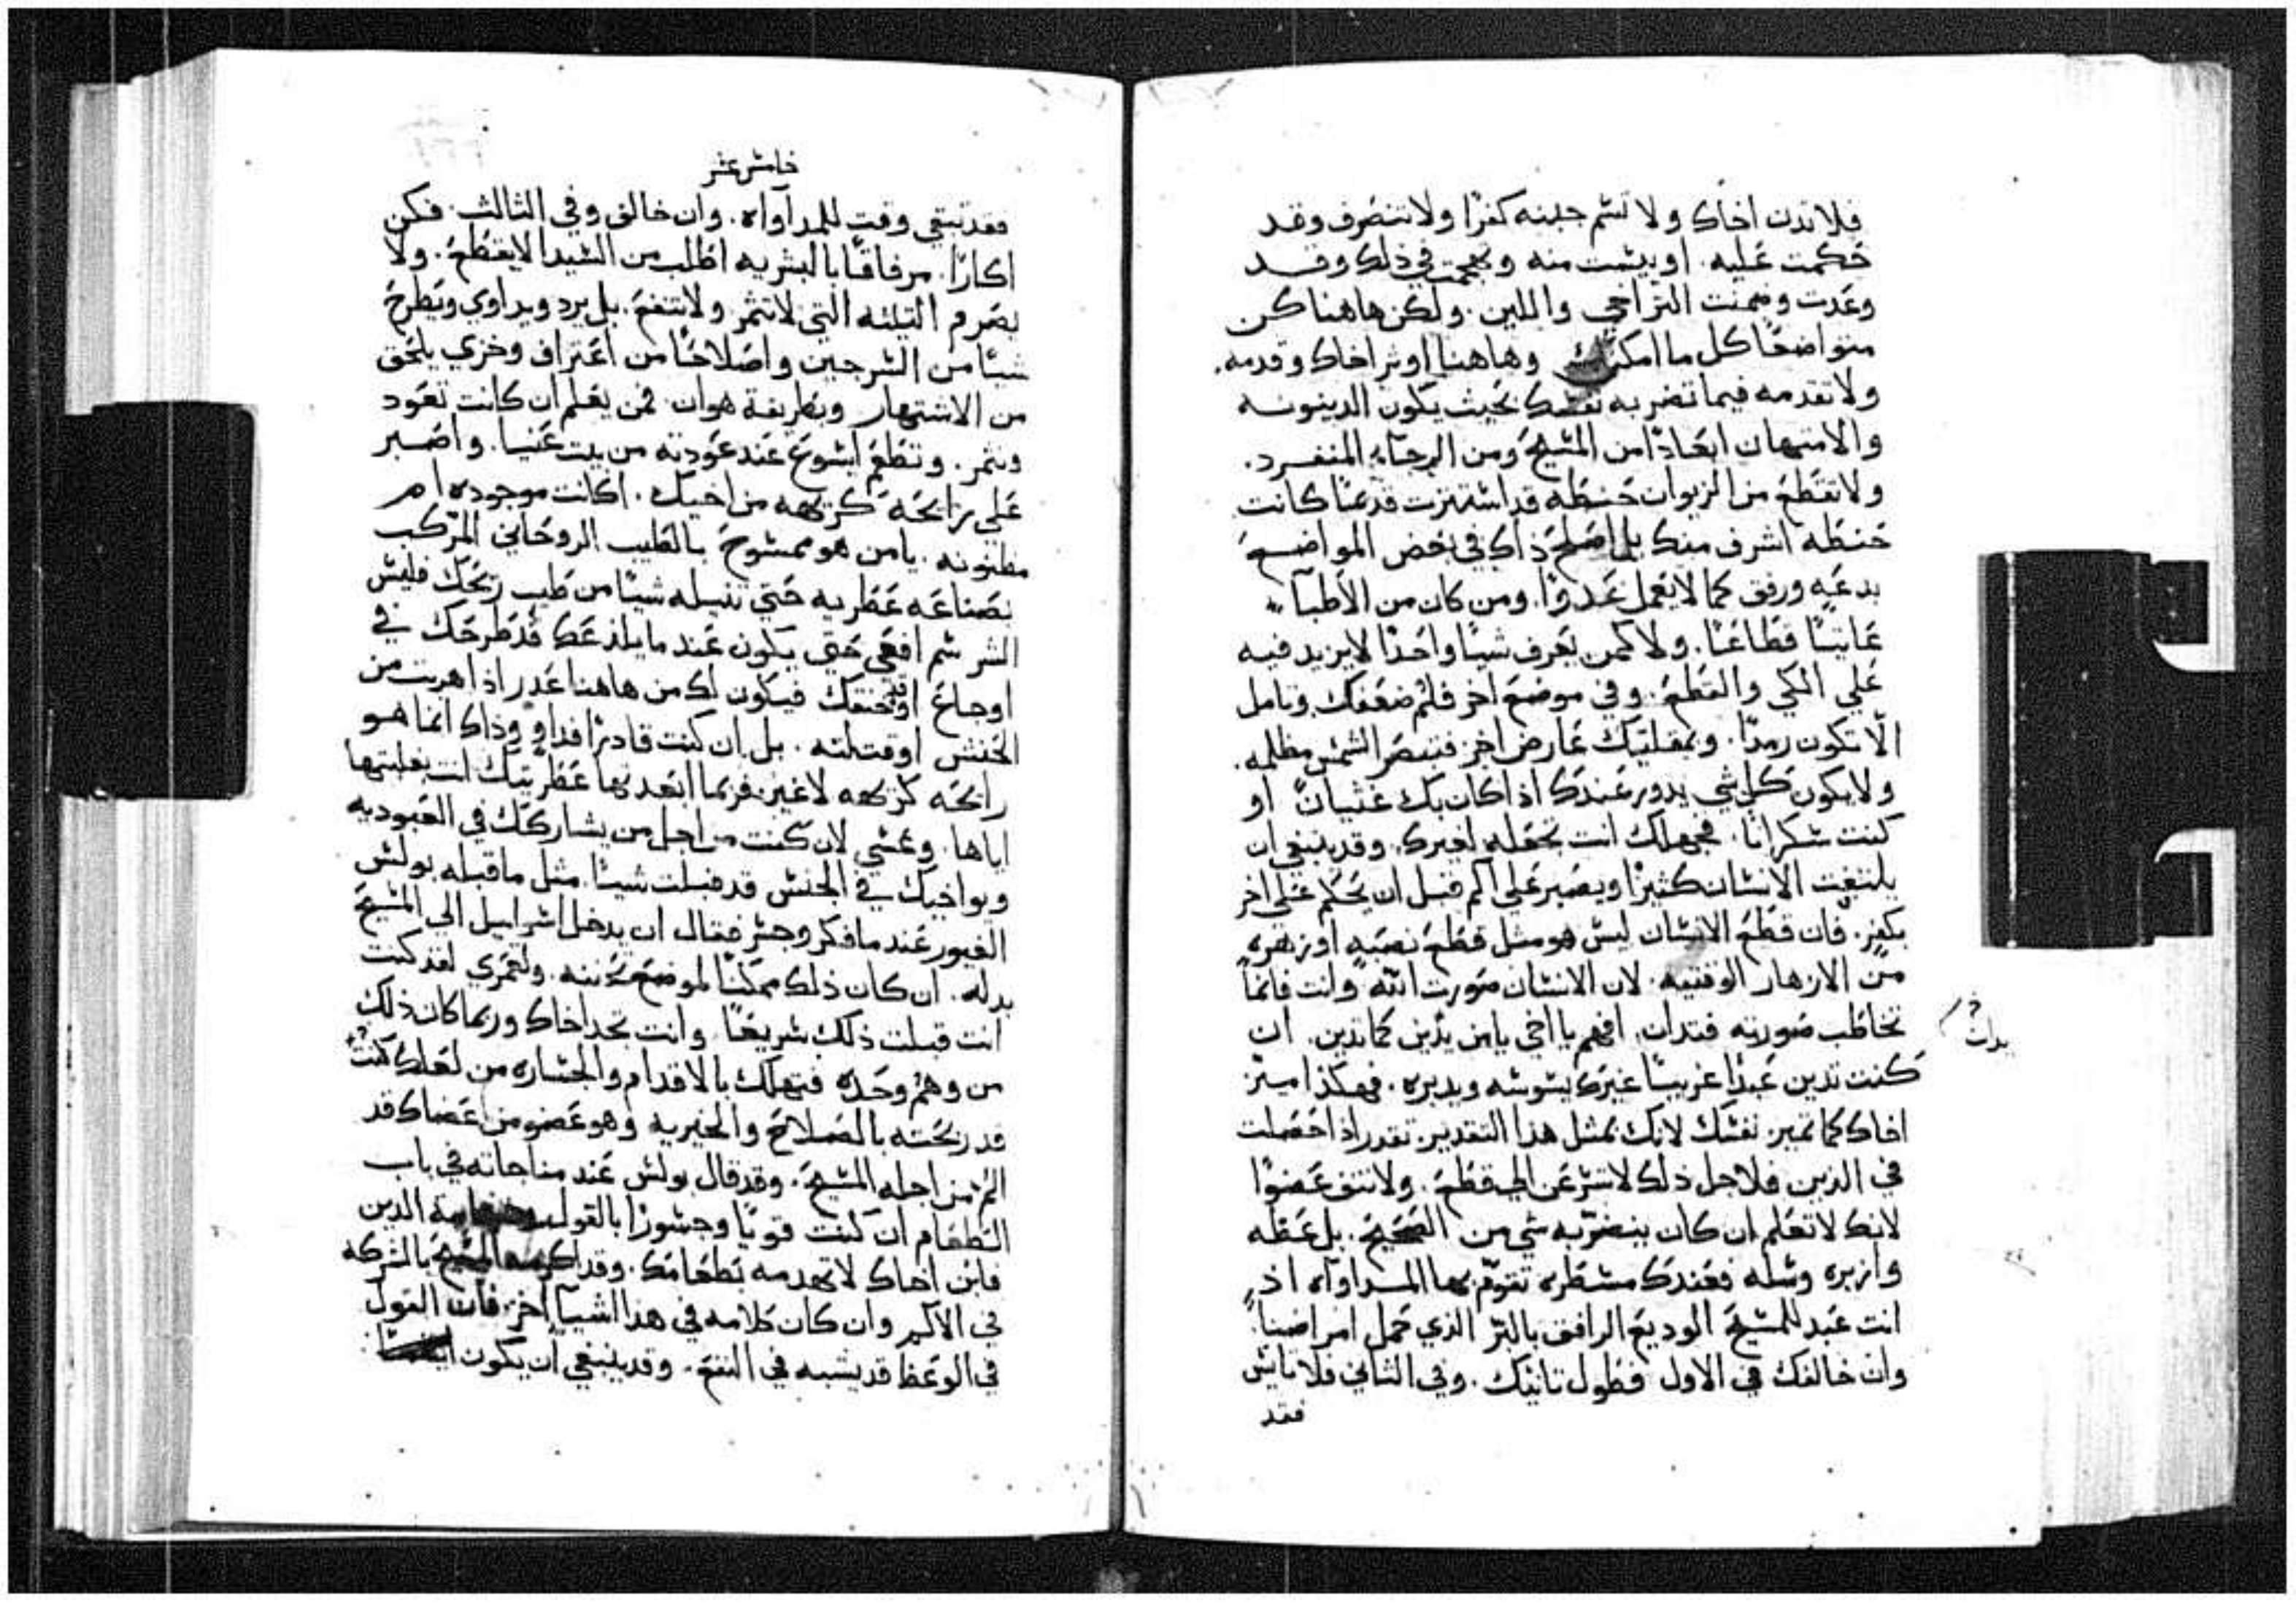 فلا تدن اخاك ولا تسم جبنه كفرًا ولا تنصرف وقد
حَكمت عَليه. او يئست منه وهجمت في ذلك وقد
وعَدت وضمنت التراخي واللين. ولكن هاهنا كن
متواضعًا كل ما امكنك وهاهنا اوثر اخاك وقدمه.
ولا تقدمه فيما تضر به نفسك بحيث يكون الدينونه
والامتهان ابعَادًا من المسَيح ومن الرجاء المنفرد.
ولا تقطع من الزيوان حَنطه قد استترت قدعسًا كانت
حَنطه اشرف منك بل اصلح ذاك في بعض المواضع
بدعَه ورفق كما لا يعمل عَدوًا. ومن كان من الأطبآ
عَاتيًا قطاعًا. ولا كمن يعَرف شيًا واحَدًا لا يزيد فيه
عَلي الكي والقطع. وفي موضع اخر فلم ضعفك وتامل
الّا تكون رمدًا. وبمقلتيك عَارض اخر فتبصَر الشمس مظلمه.
ولا يكون كل شي يدور عَندك اذا كان بك غثيانٌ او
كنت سَكرانًا. فجهلك انت تجعَله لغيرك. وقد ينبغي ان
يلتفت الانسَان كثيرًا ويصَبر عَلي الم قبل ان يحَكم عَلي اخر
بكفر. فان قطع الانسَان ليسَ هو مثل قطع نصَبه او زهره
من الازهار الوقتيه. لان الانسَان صَورت الله وانت فانما
تخاطب صَورته فتدان. افهم يا اخي يا من يدين كما تدين. ان
كنت تدين عَبدًا غريبًا غيرك يسَوسَه ويدبره. فهكذا ميّز
اخاك كما تميز نفسَك لانك بمثل هذا التقدير تقدر اذا حَصَلت
في الدين فلاجل ذلك لا تسَرع الي قطع. ولا تنف عَضوًا
لانك لا تعَلم ان كان ينضر به شي من الصَحيح. بل عَظه
وازبره وسَله فعَندك مسَطره تقوّم بها المداواه اذ
انت عَبد للمسَيح الوديع الرافق بالبَر الذي حَمل امراضنا
وان خالفك في الاول فطول تانيك. وفي الثاني فلا تايس
فقد
بدات
خامس عشر
فقد تبقي وقت للمدآواه. وان خالف وفي الثالث. فكن
اكارًا. مرفاقًا بالبشريه اطلب من السَيد الا يقطع. ولا
يصَرم التينه التي لا تثمر ولا تنفع. بل يرد ويداوي ويطرح
شيًا من السَرجين واصَلاحًا من اعَتراف وخزي يلحَق
من الاشتهار وبطريقة هوان. فمن يعَلم ان كانت تعَود
وتثمر. وتطعم ايسَوع عَند عَودته من بيت عَنيا. واصَبر
عَلي رائحَه كَريهه من اخيك. اكانت موجوده ام
مظنونه. يا من هو ممسَوح بالطيب الروحَاني المركب
بصَناعَه عَطريه حَتي تنيله شيًا من طيب ريحَك فليسَ
الشر سَم افعَي حَتي يكون عَند ما يلذعَك قد طرحَك في
اوجاع او خنقك فيكون لك من هاهنا عَذر اذا هربت من
الحَنش او قتلته. بل ان كنت قادرًا فداو وذاك انما هو
رائحَه كريهه لا غير. فربما ابعَدتها عَطريتك انت بغلبتها
اياها. وعَسَي لان كنت من اجل من يشاركَك في العَبوديه
ويواخيك في الجنسَ قد قبلت شيًا. مثل ما قبله بولسَ
الغيور عَند ما فكر وجسَر فقال ان يدخل اسَراييل الي المسَيح
بدله. ان كان ذلك ممكنًا لموضع تحَننه. ولعَمري لقد كنت
انت قبلت ذلك سَريعًا وانت تجد اخاك وربما كان ذلك
من وهم وحَده فتهلك بالاقدام والجسَاره من لعَلك كنت
قد ربحَته بالصَلاح والخيريه وهو عَضو من اعَضاك قد
الم من اجله المسَيح. وقد قال بولسَ عَند مناجاته في باب
الطعَام ان كنت قويًا وجسَورًا بالقول الدين
فابن اخاك لا تهدمه بطعَامك. وقد اكرمه المسَيح بالشركه
في الالم وان كان كلامه في هذا اشيآ اخر. فان القول
في الوعَظ قد يشبه في النفع. وقد ينبغي ان يكون